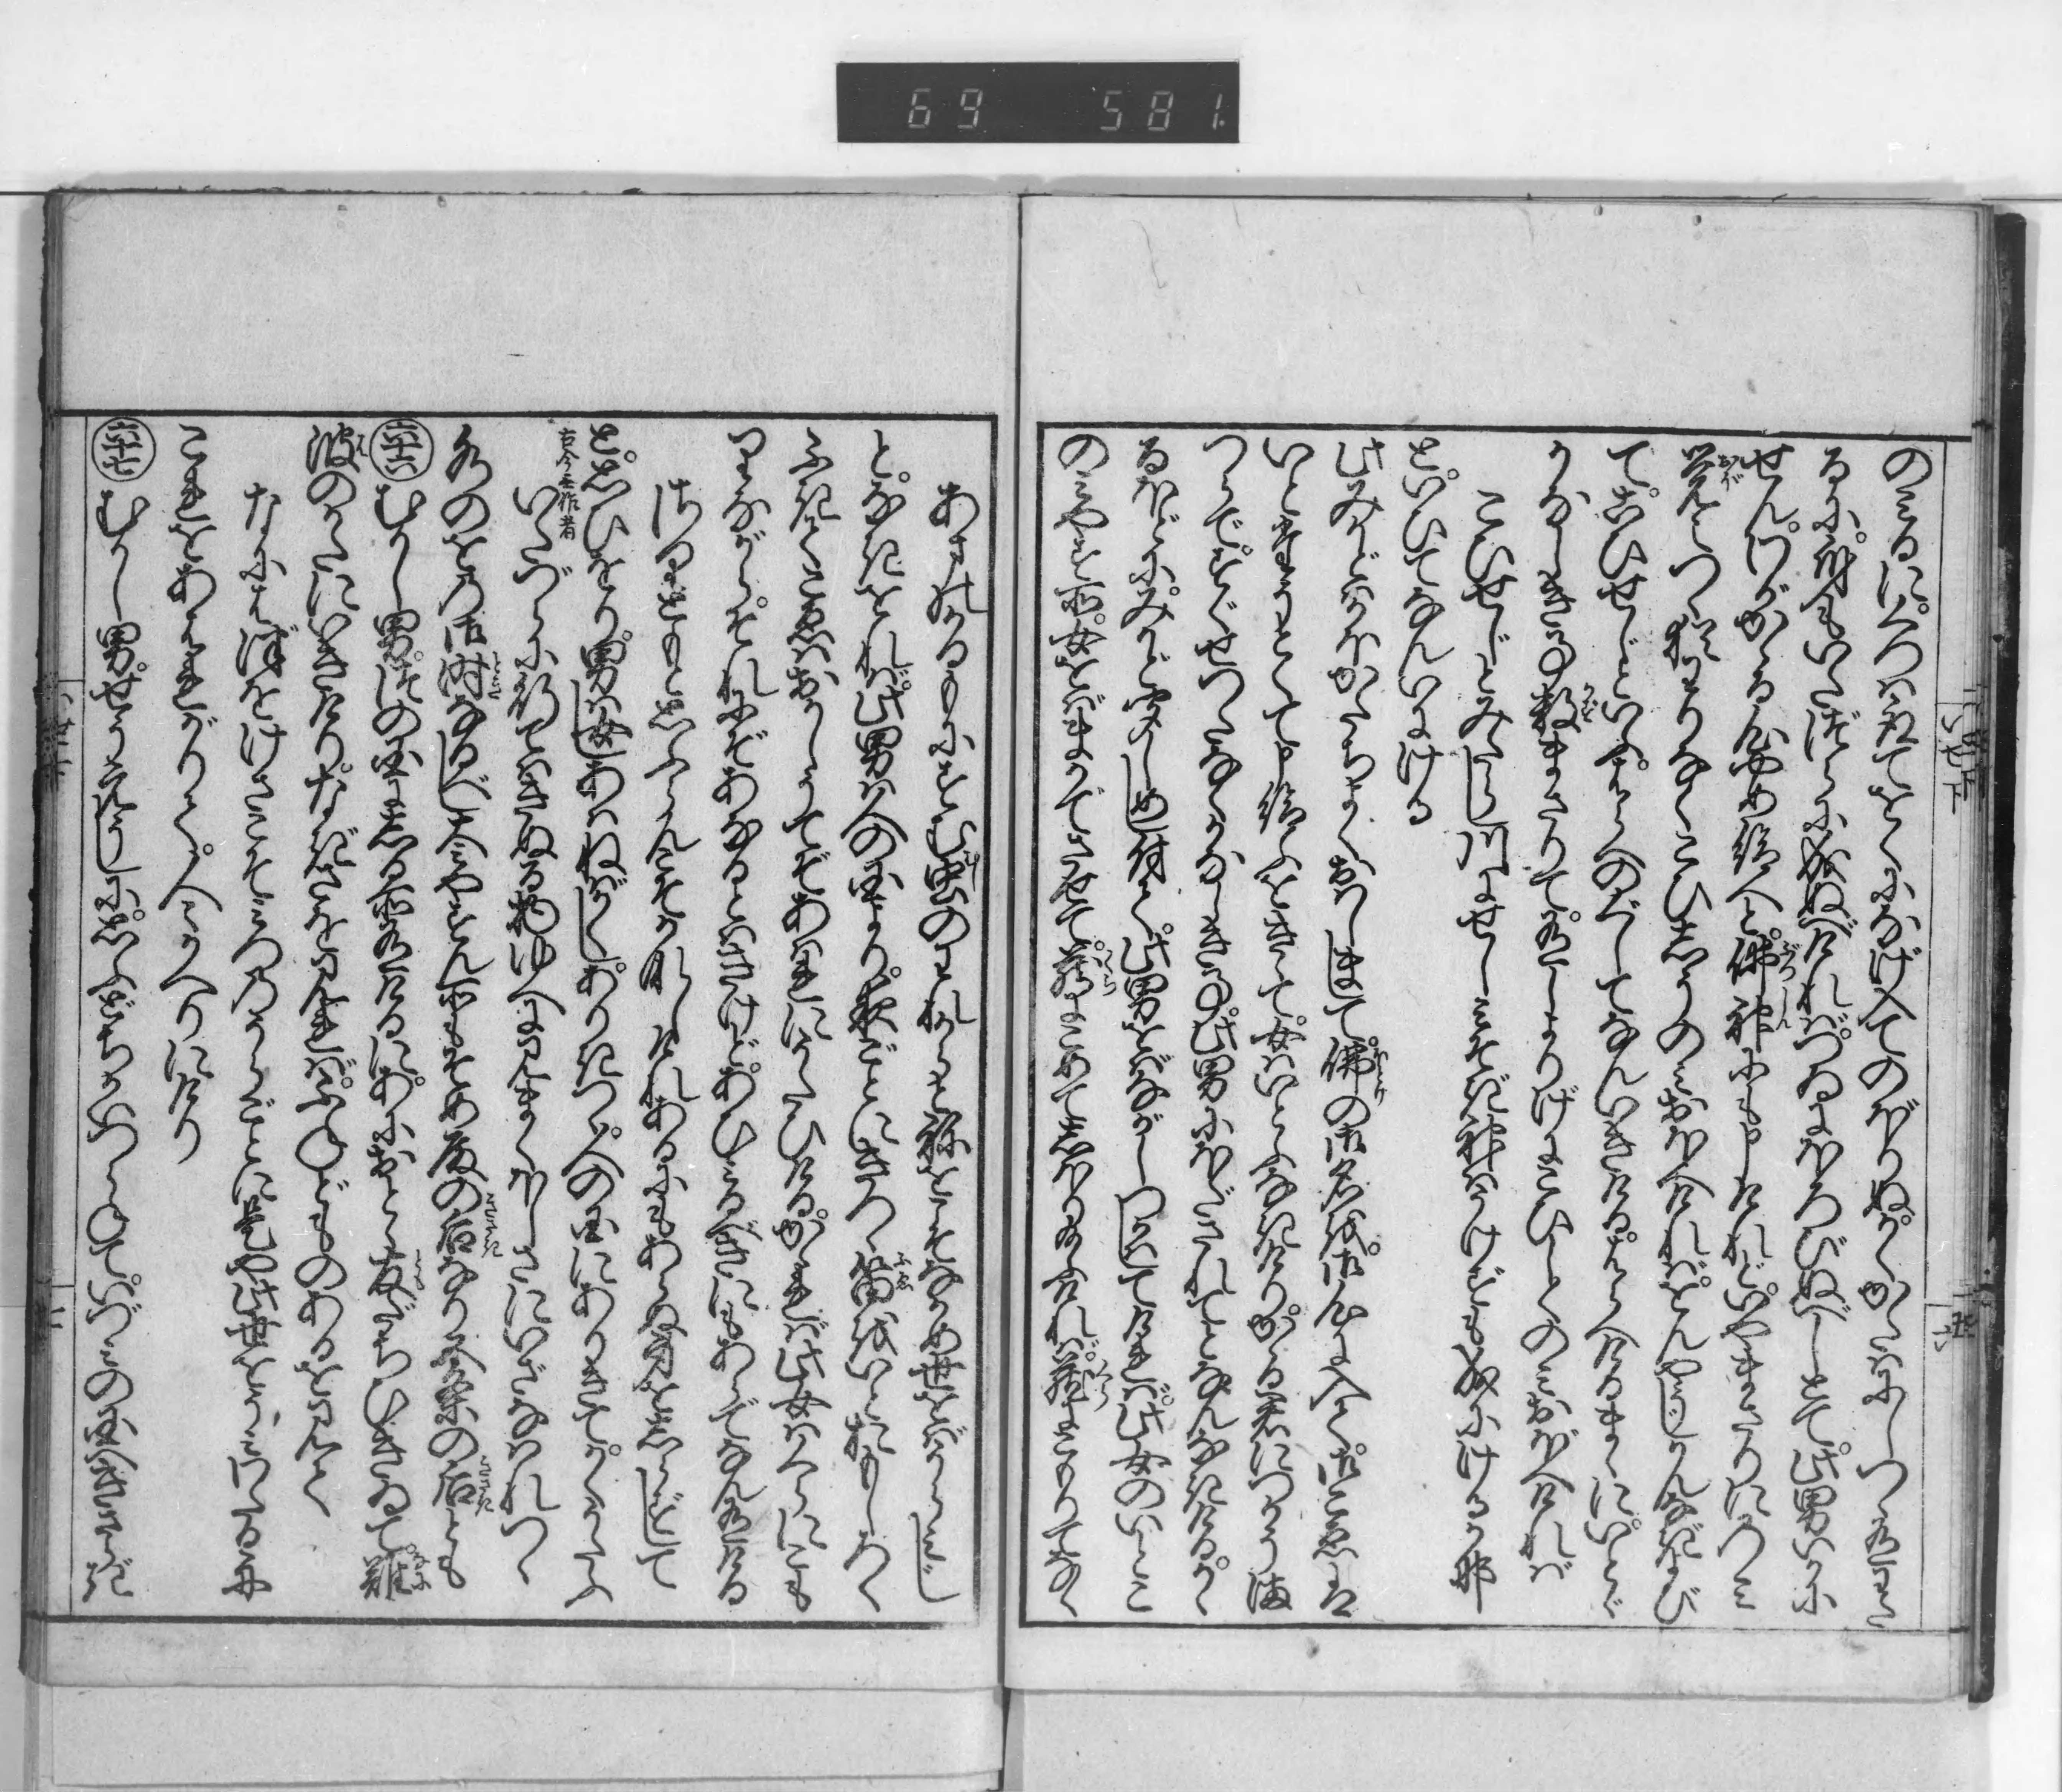 69 581
のみるに。くつはとりておくになげ入てのぼりぬ。かくかたはにしつゝありわた
るに。身もいたづらに成ぬべければ。つゐにほろびぬべしとて。此男いかに
せん。わがかゝる心やめ給へと。佛神にも申けれど。いやまさりにのみ
覚えつゝ。猶わりなくこひしうのみおぼえければ。おんやうじかんなぎよび
て。こひせじといふ。はらへのぐしてなんいきける。はらへけるまゝに。いとゞ
かなしきこと数まさりて。ありしよりけにこひしくのみおぼえければ
こひせじとみたらし川にせしみそぎ神はうけずも成にけるか那
と。いひてなんいにける
此みかどはかほかたちよくおはしまして。佛の御名を。御心に入て。御こゑは
いとたうとくて申給ふをきゝて。女はいとふなきけり。かゝる君につかうま
つらで。すぐせつたなくかなしきこと。此男にほだされてとなんなきける。かゝ
るほどに。みかど聞しめし付て。此男をばながしつかはしてければ。此女のいとこ
のみやす所。女をばまかでさせて。蔵にこめてしほり給ふければ。蔵にこもりてなく
あまのかるもにすむ虫のわれからと祢をこそなかめ世をばうらみじ
と。なきをれば。此男は人の国より。夜ごとにきつゝ。笛をいとおもしろく
ふきて。こゑはおかしうてぞあはれにうたひける。かゝれば此女はくらにこも
りながら。それにぞあなるとはきけど。あひみるべきにもあらでなんありける
さりともと思ふらんこそかなしけれあるにもあらぬ身をしらずして
と。思ひをり。男は女しあはねば。かくしありきつゝ。人の国にありきて。かくうたふ
古今無作者
いたづらに行てはきぬる物ゆへに見まくほしさにいざなはれつゝ
水のをの御時なるべし。大みやすん所もそめ殿の后なり。五条の后とも
六十六 むかし男。津の国にしる所ありけるに。あにおとゝ友だちひきゐて。難
波のかたにいきけり。なぎさを見れば。ふねどものあるを見て
なにはづをけさこそみつのうらごとに是や此世をうみわたる舟
これをあはれがりて。人々かへりにけり
六十七 むかし男。せうえうしに。思ふどちかいつらねて。いづみの国へきさらぎ